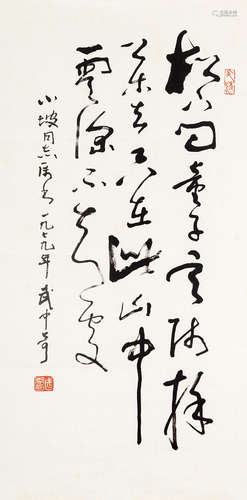 松下问童子言师採
药去只在此山中
雲深不知處
小坡同志属书 一九七九年 武中奇